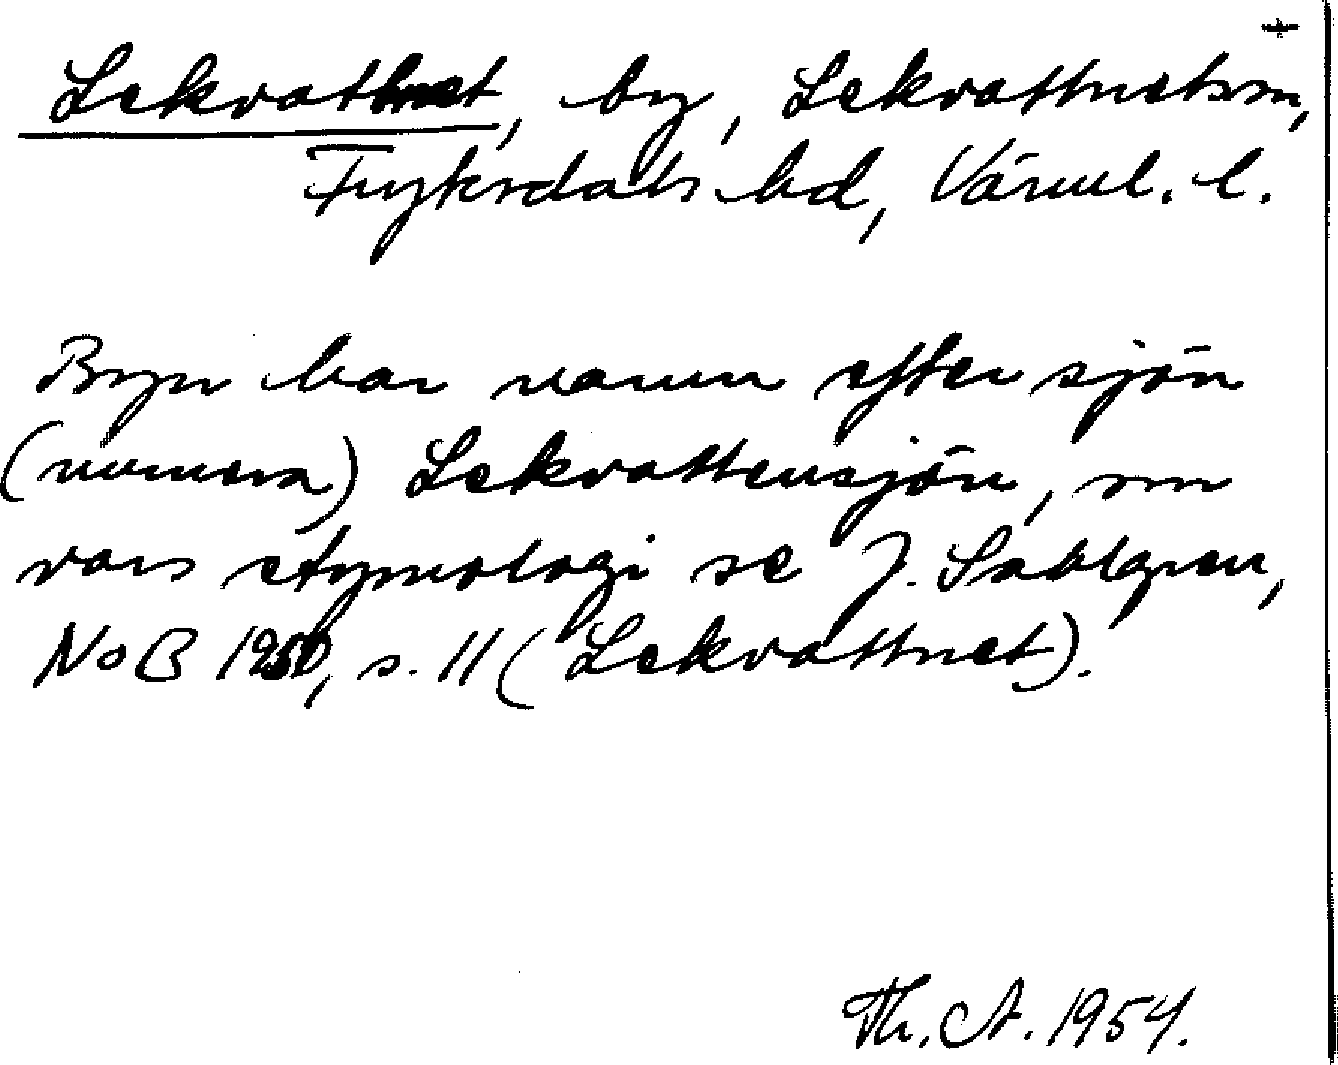 +
Lekvattnet, by, Lekvattnets sn,
Fryksdals hd, Värml. l.
Byn har namn efter sjön
(numera) Lekvattensjön, om
vars etymologi se J. Sahlgren,
NoB 1950, s. 11 (Lekvattnet).
Th. A. 1954.